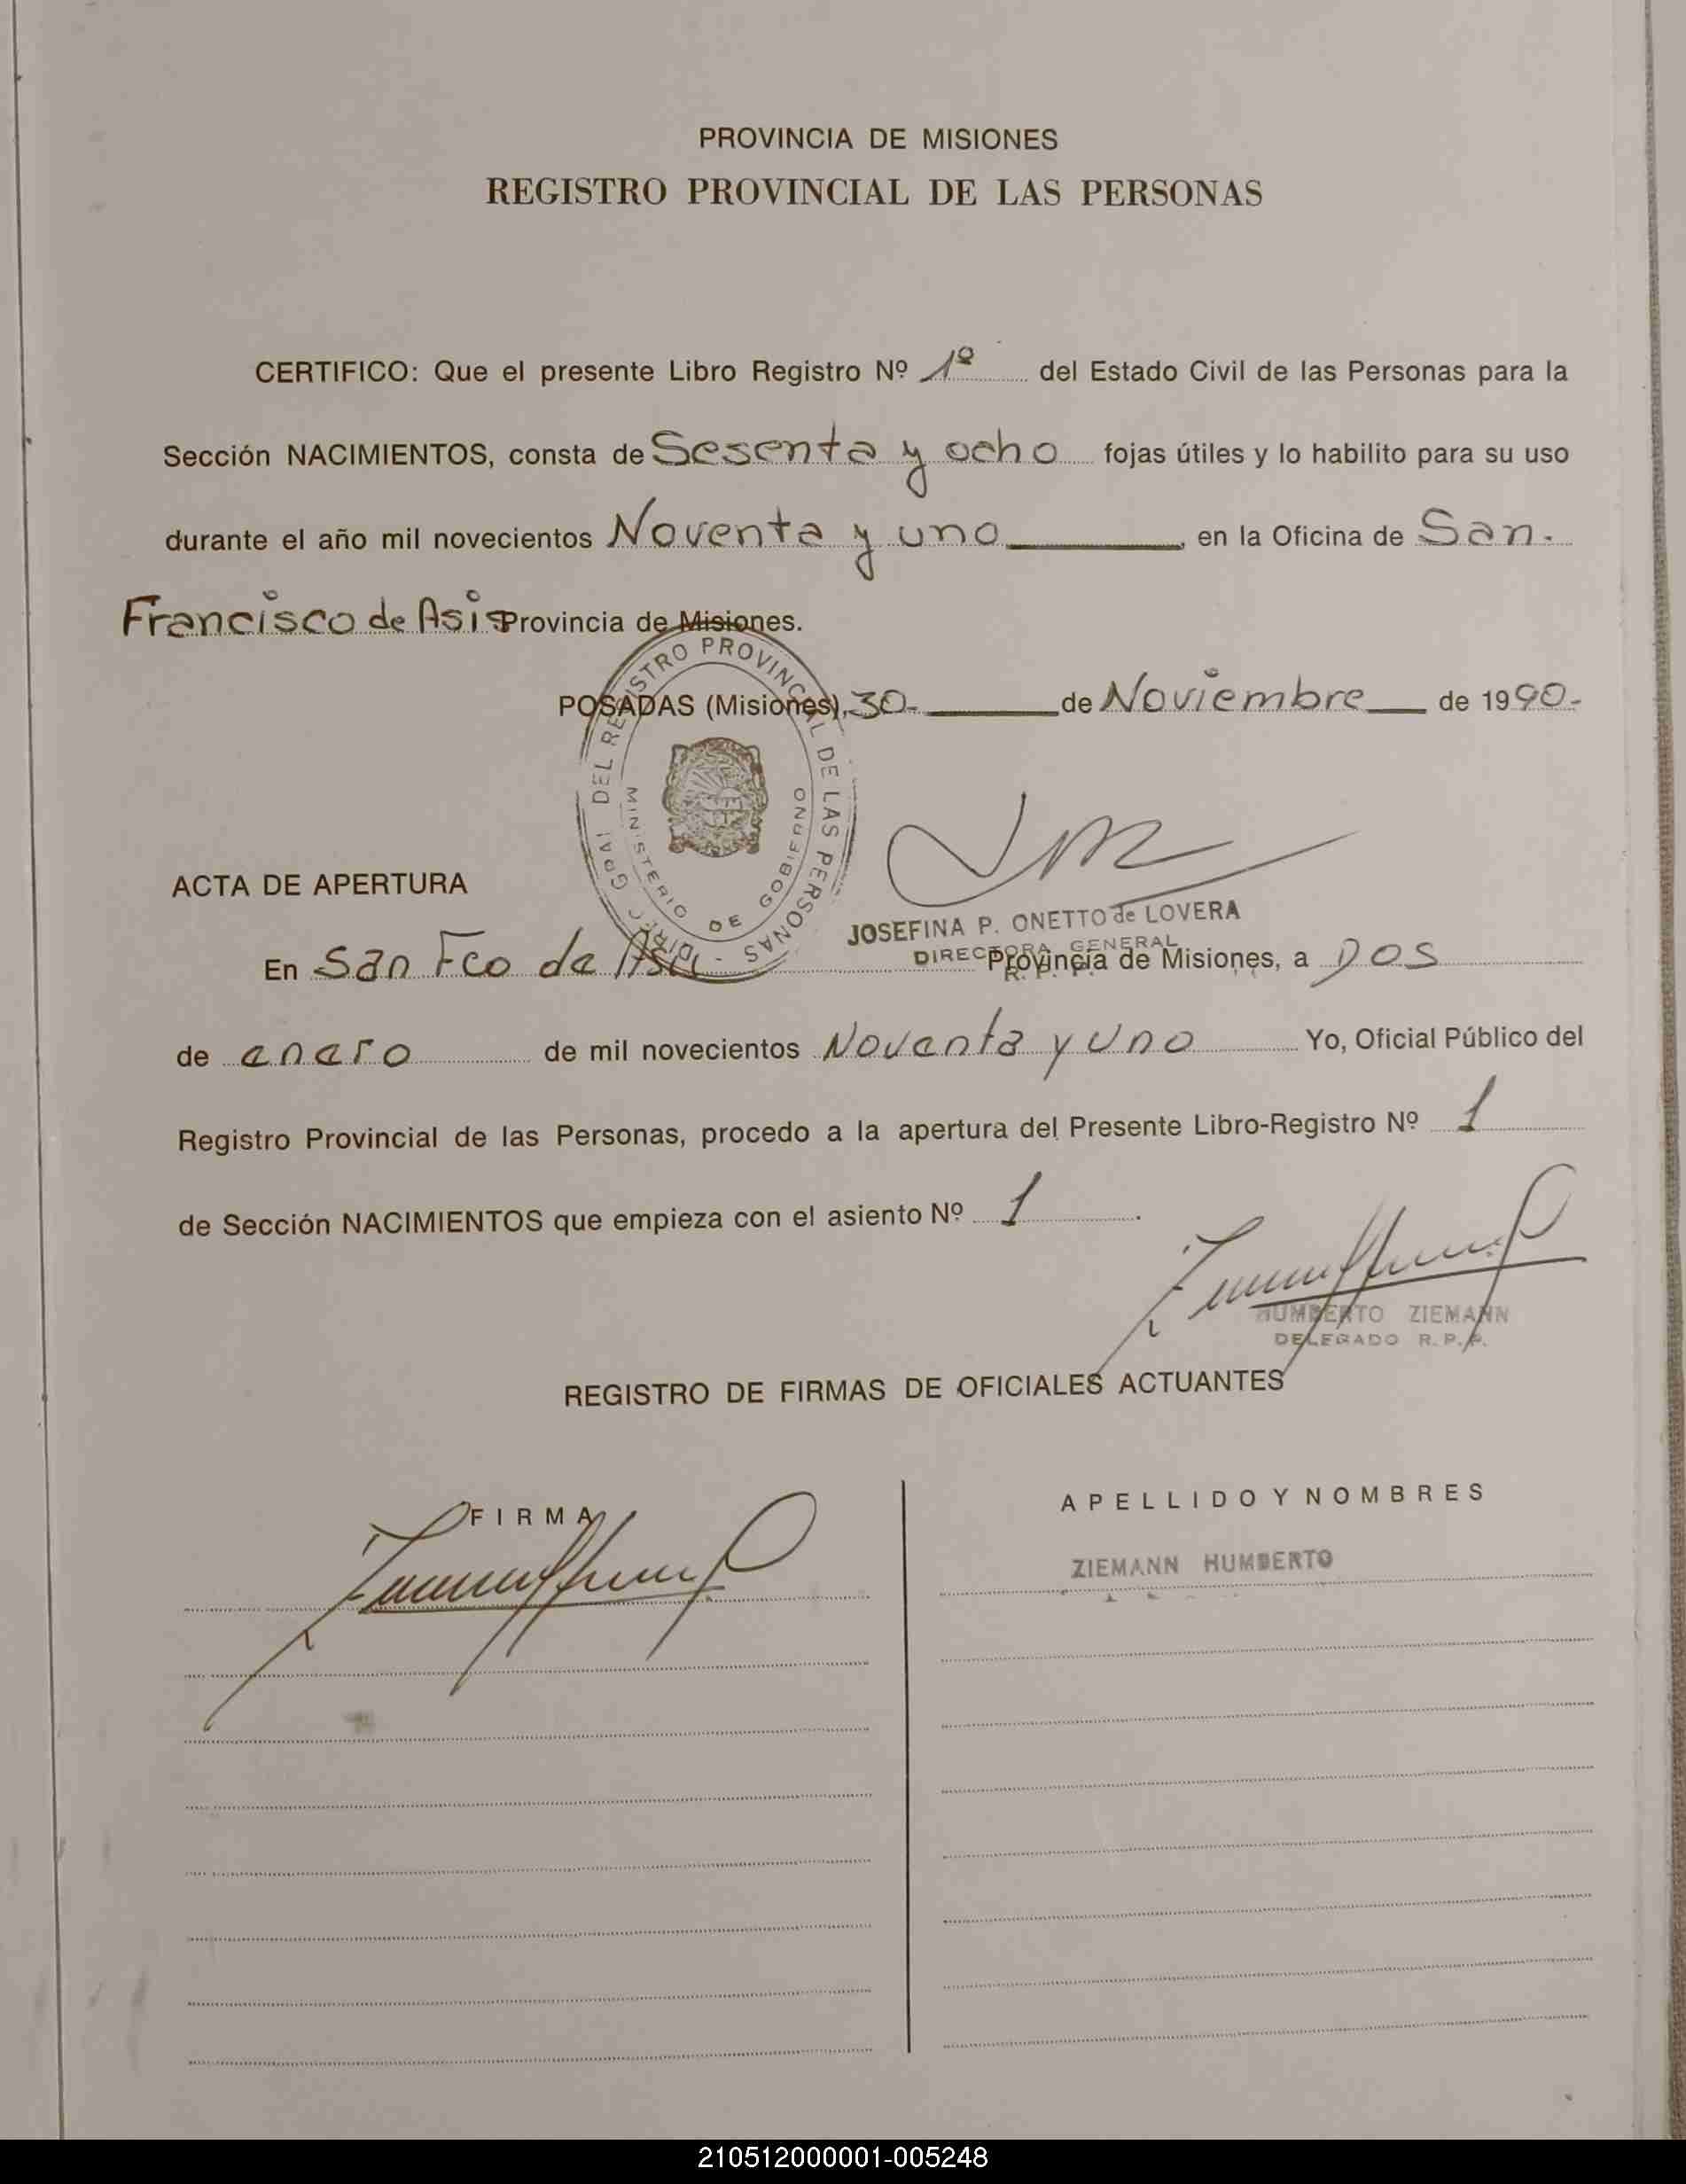 PROVINCIA DE MISIONES
REGISTRO PROVINCIAL DE LAS PERSONAS
CERTIFICO: Que el presente Libro Registro Nº 1º del Estado Civil de las Personas para la
Sección NACIMIENTOS, consta de Sesenta y ocho fojas útiles y lo habilito para su uso
durante el año mil novecientos Noventa y uno, en la Oficina de San.
Francisco de Asis Provincia de Misiones.
POSADAS (Misiones), 30- de Noviembre de 1990-
DIREC. GRAL DEL REGISTRO PROVINCIAL DE LAS PERSONAS -
MINISTERIO DE GOBIERNO
JOSEFINA P. ONETTO de LOVERA
DIRECTORA GENERAL
R. P. P.
ACTA DE APERTURA
En San Fco de Asis Provincia de Misiones, a DOS
de enero de mil novecientos Noventa y uno Yo, Oficial Público del
Registro Provincial de las Personas, procedo a la apertura del Presente Libro-Registro Nº 1
de Sección NACIMIENTOS que empieza con el asiento Nº 1.
HUMBERTO ZIEMANN
DELEGADO R. P. P.
REGISTRO DE FIRMAS DE OFICIALES ACTUANTES
FIRMA
APELLIDO Y NOMBRES
ZIEMANN HUMBERTO
210512000001-005248